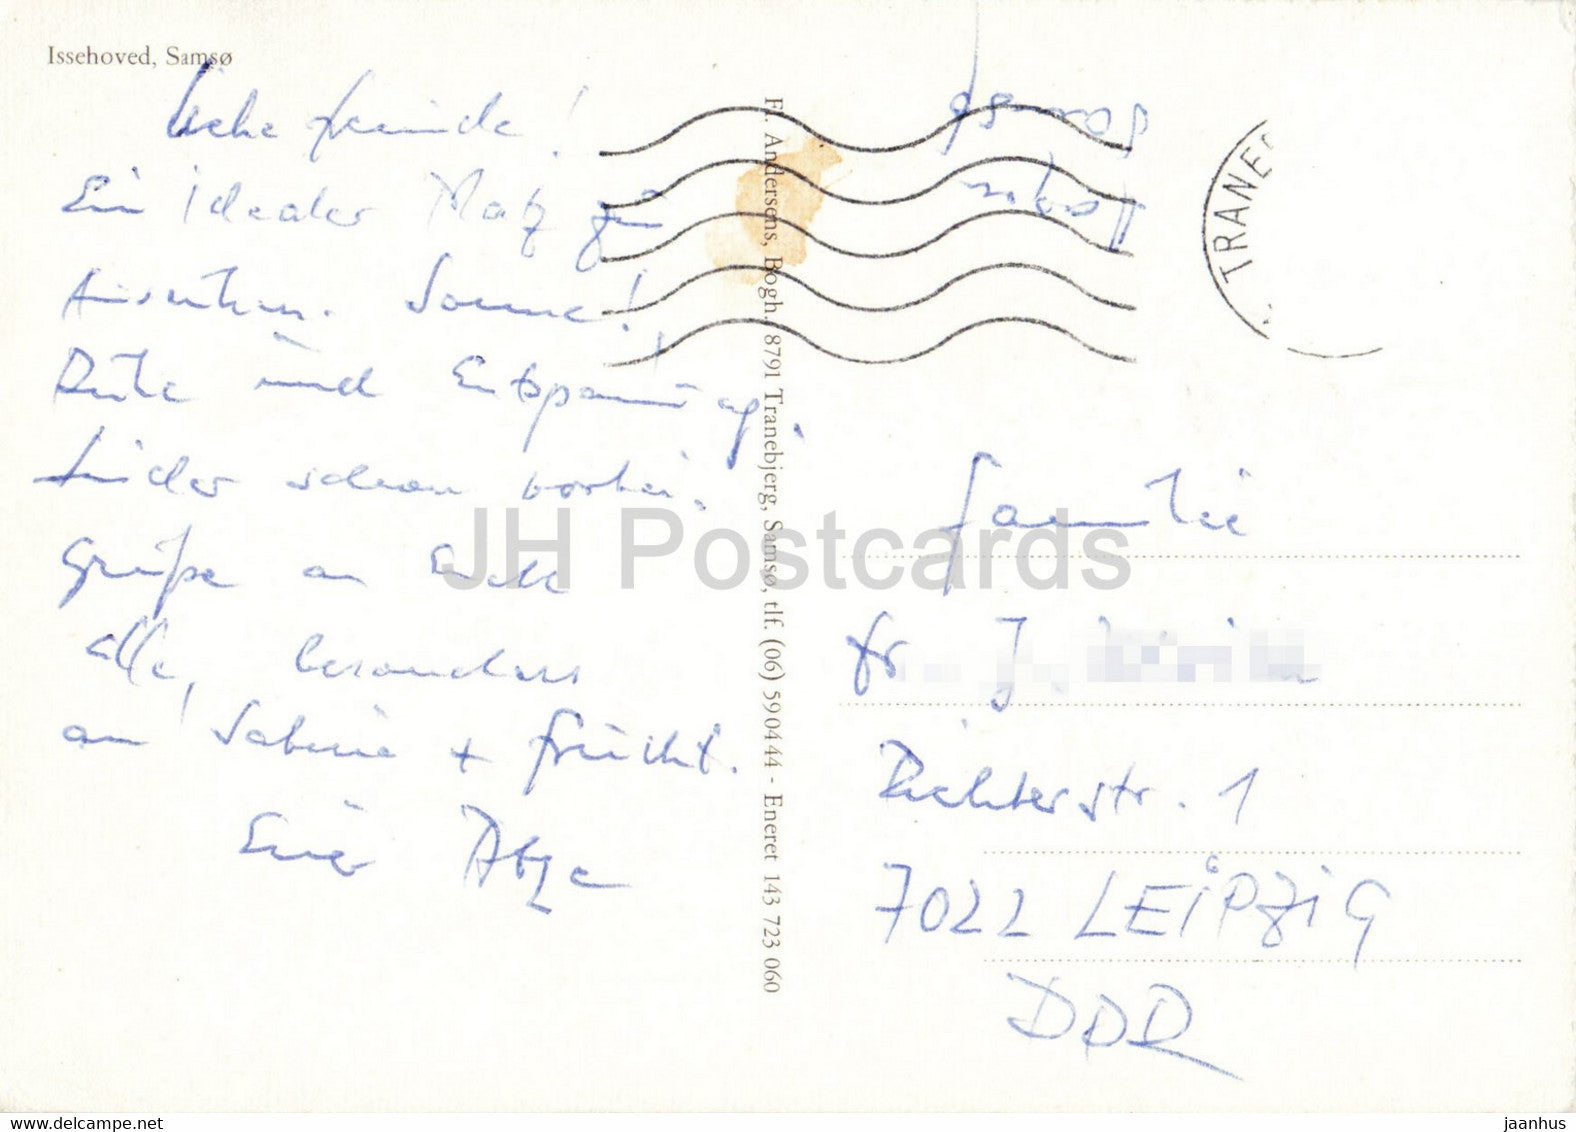 Issehoved, Samsø
Liebe Freunde!
Ein idealer Platz zum
Ausruhen. Sonne!
Ruhe und Entspannung!
Leider schon vorbei.
Grüße an Euch
alle, besonders
an Sabine + Frücht.
Euer
Fl. Andersens, Bogh., 8791 Tranebjerg, Samsø, tlf. (06) 590444 - Eneret 143 723 060
Samsø
TRANE
Familie
Fr. J.
Richterstr. 1
7022 LEIPZIG
DDR
JH Postcards
delcampe.net
jaanhus